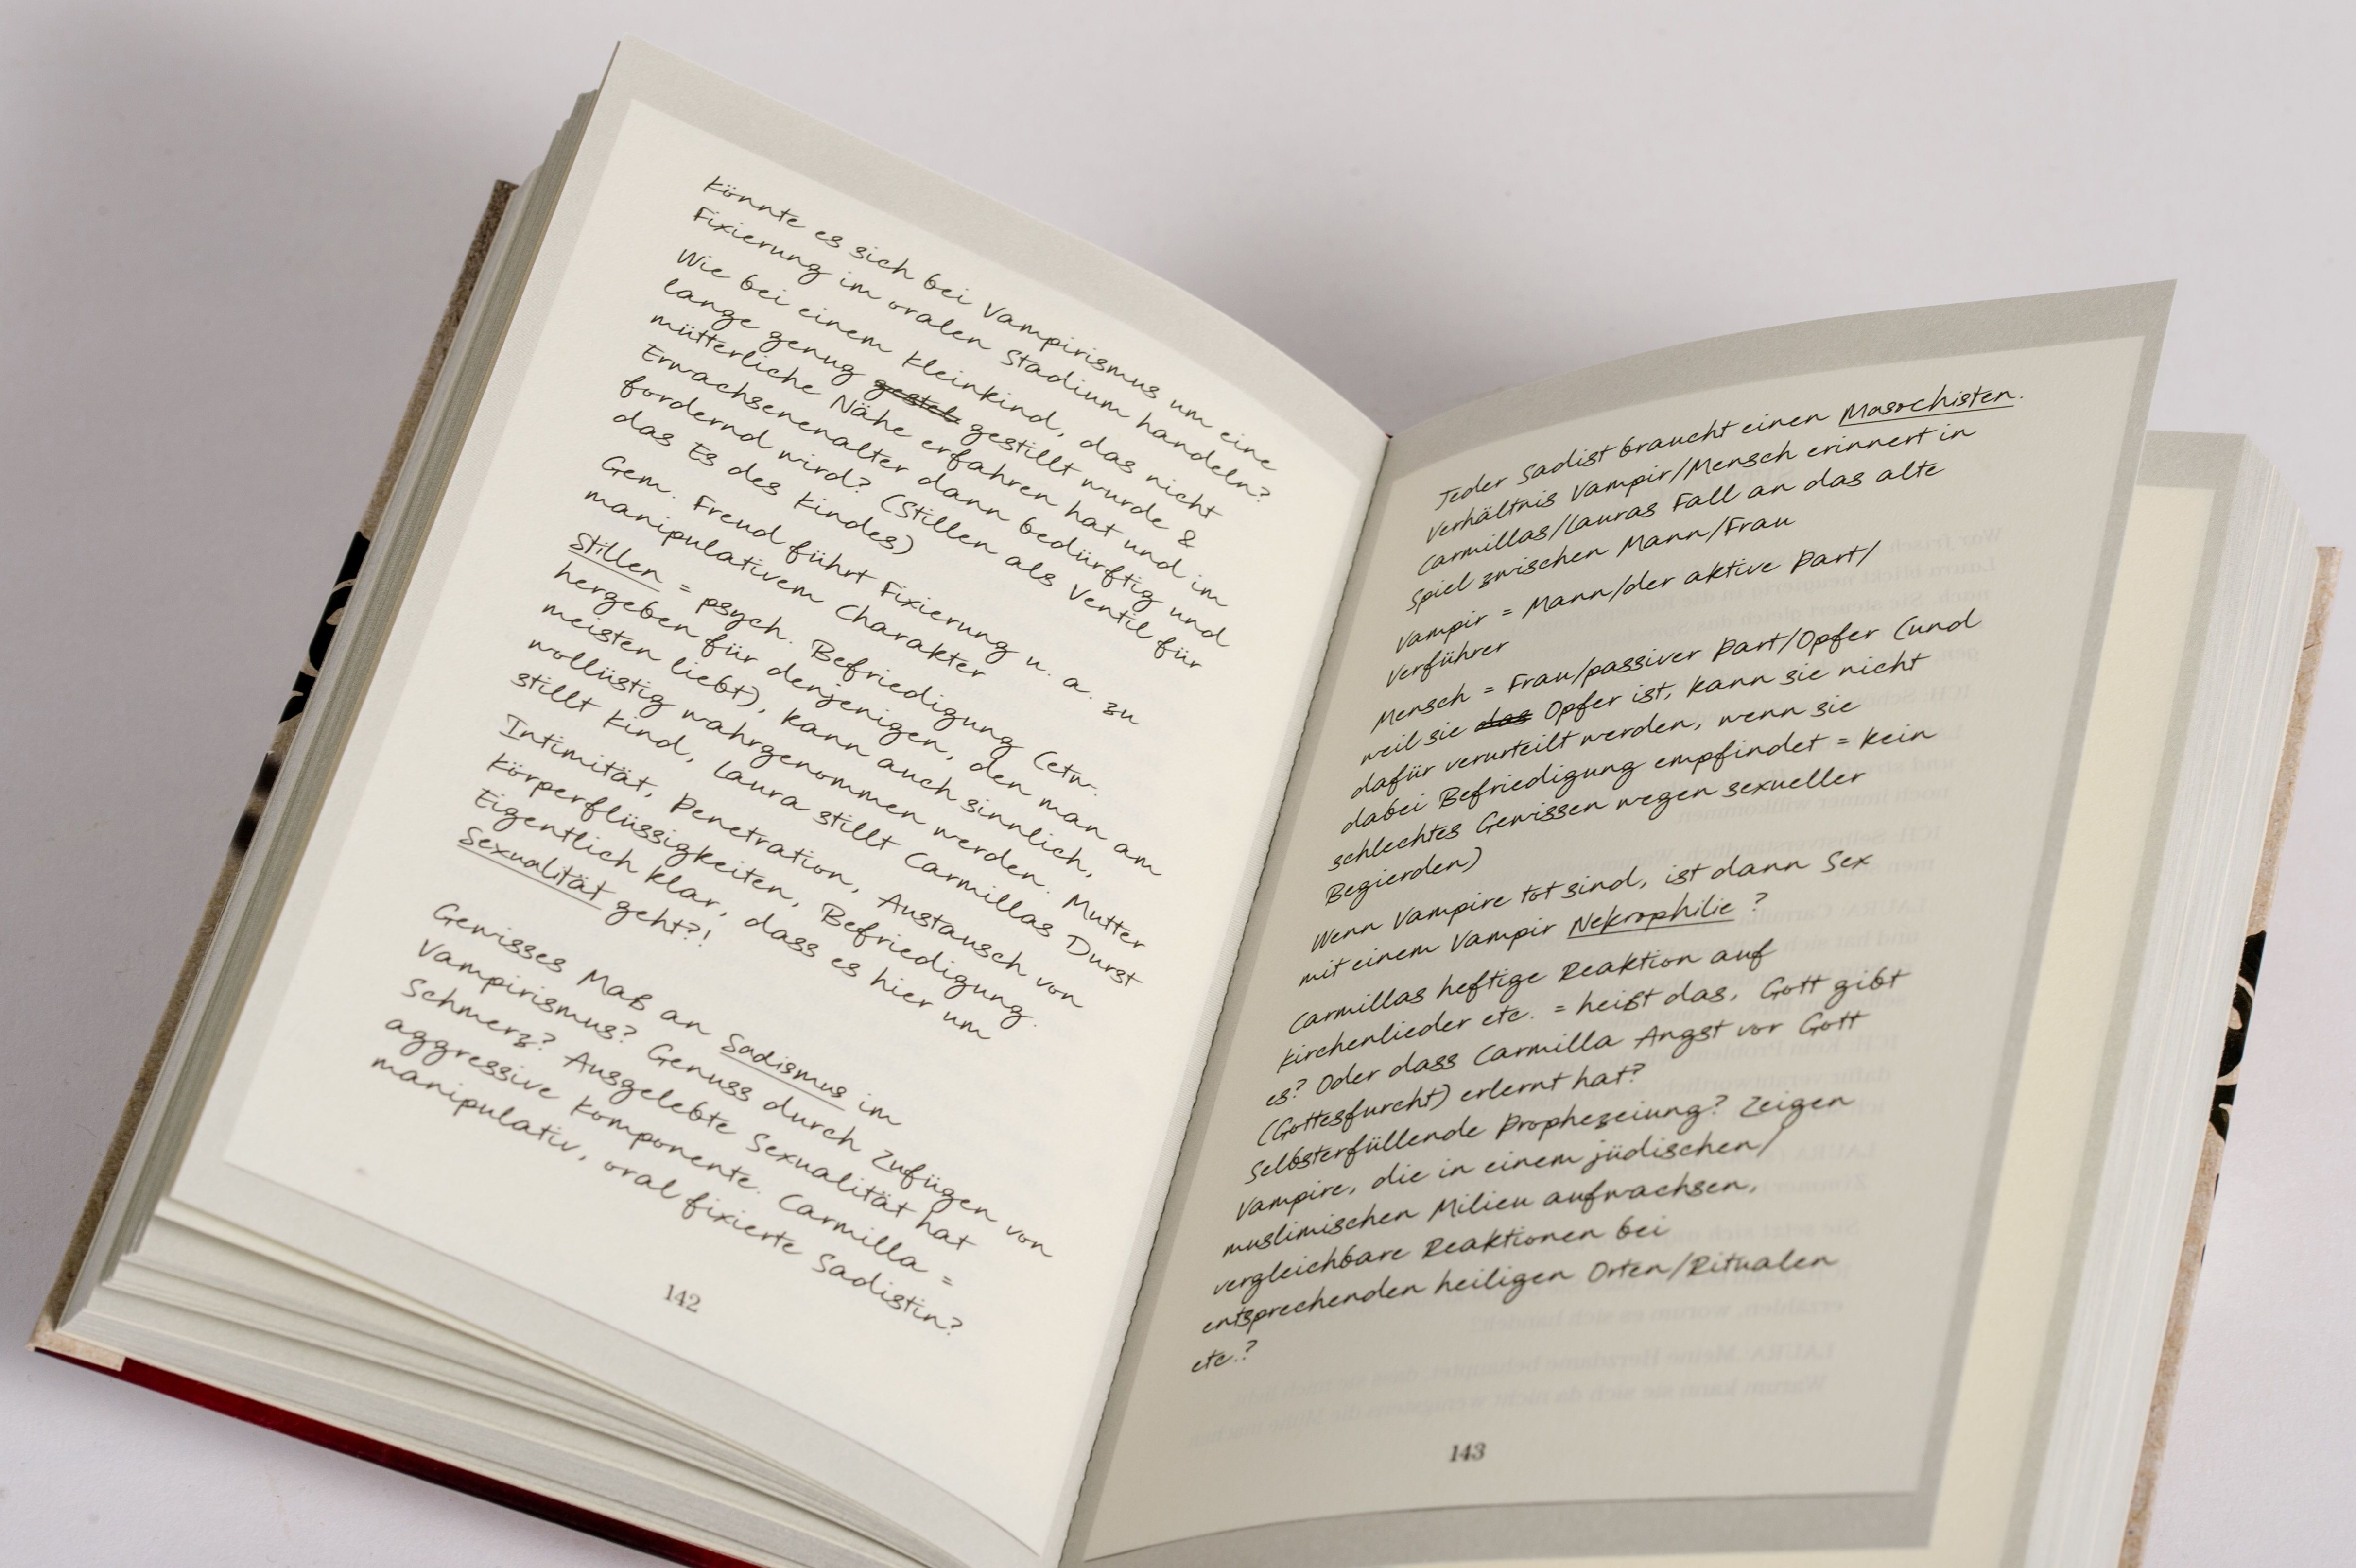 Könnte es sich bei Vampirismus um eine
Fixierung im oralen Stadium handeln?
Wie bei einem Kleinkind, das nicht
lange genug gestel gestillt wurde &
mütterliche Nähe erfahren hat und im
Erwachsenenalter dann bedürftig und
fordernd wird? (Stillen als Ventil für
das Es des Kindes)
Gem. Freud führt Fixierung u. a. zu
manipulativem Charakter
Stillen = psych. Befriedigung (etw.
hergeben für denjenigen, den man am
meisten liebt), kann auch sinnlich,
wollüstig wahrgenommen werden. Mutter
stillt Kind, Laura stillt Carmillas Durst
Intimität, Penetration, Austausch von
Körperflüssigkeiten, Befriedigung.
Eigentlich klar, dass es hier um
Sexualität geht?!
Gewisses Maß an Sadismus im
Vampirismus? Genuss durch Zufügen von
Schmerz? Ausgelebte Sexualität hat
aggressive Komponente. Carmilla =
manipulativ, oral fixierte Sadistin?
142
Jeder Sadist braucht einen Masochisten.
Verhältnis Vampir/Mensch erinnert in
Carmillas/Lauras Fall an das alte
Spiel zwischen Mann/Frau
Vampir = Mann/der aktive Part/
Verführer
Mensch = Frau/passiver Part/Opfer (und
weil sie das Opfer ist, kann sie nicht
dafür verurteilt werden, wenn sie
dabei Befriedigung empfindet = kein
schlechtes Gewissen wegen sexueller
Begierden)
Wenn Vampire tot sind, ist dann Sex
mit einem Vampir Nekrophilie?
Carmillas heftige Reaktion auf
Kirchenlieder etc. = heißt das, Gott gibt
es? Oder dass Carmilla Angst vor Gott
(Gottesfurcht) erlernt hat?
Selbsterfüllende Prophezeiung? Zeigen
Vampire, die in einem jüdischen/
muslimischen Milieu aufwachsen,
vergleichbare Reaktionen bei
entsprechenden heiligen Orten/Ritualen
etc.?
143